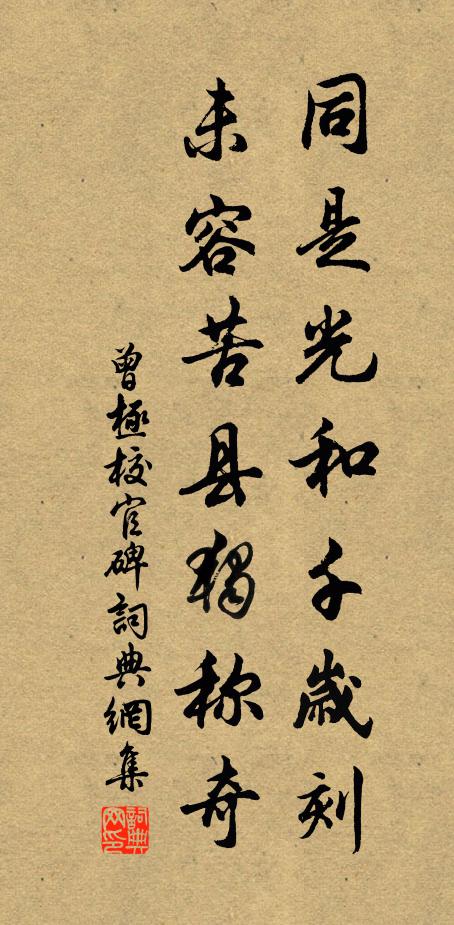 同是光和千歲刻
未容苦县獨称奇
曾極校官碑詞典網集
詞典网印